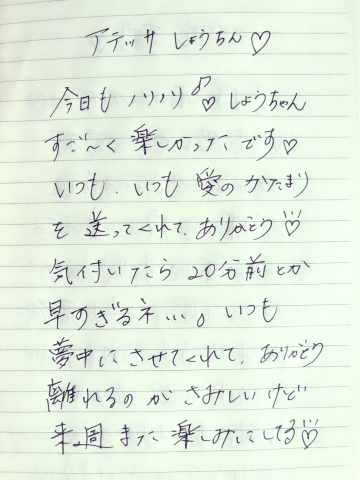 アテッサ しょうちん♡
今日も ノリノリ♪♡ しょうちゃん
すご〜く 楽しかった です♡
いつも、いつも 愛の かたまり
を 送ってくれて、ありがとう♡
気付いたら 20分前とか
早すぎるネ…。いつも
夢中に させてくれて、ありがとう
離れるの が さみしい けど
来週 また 楽しみにしてる♡